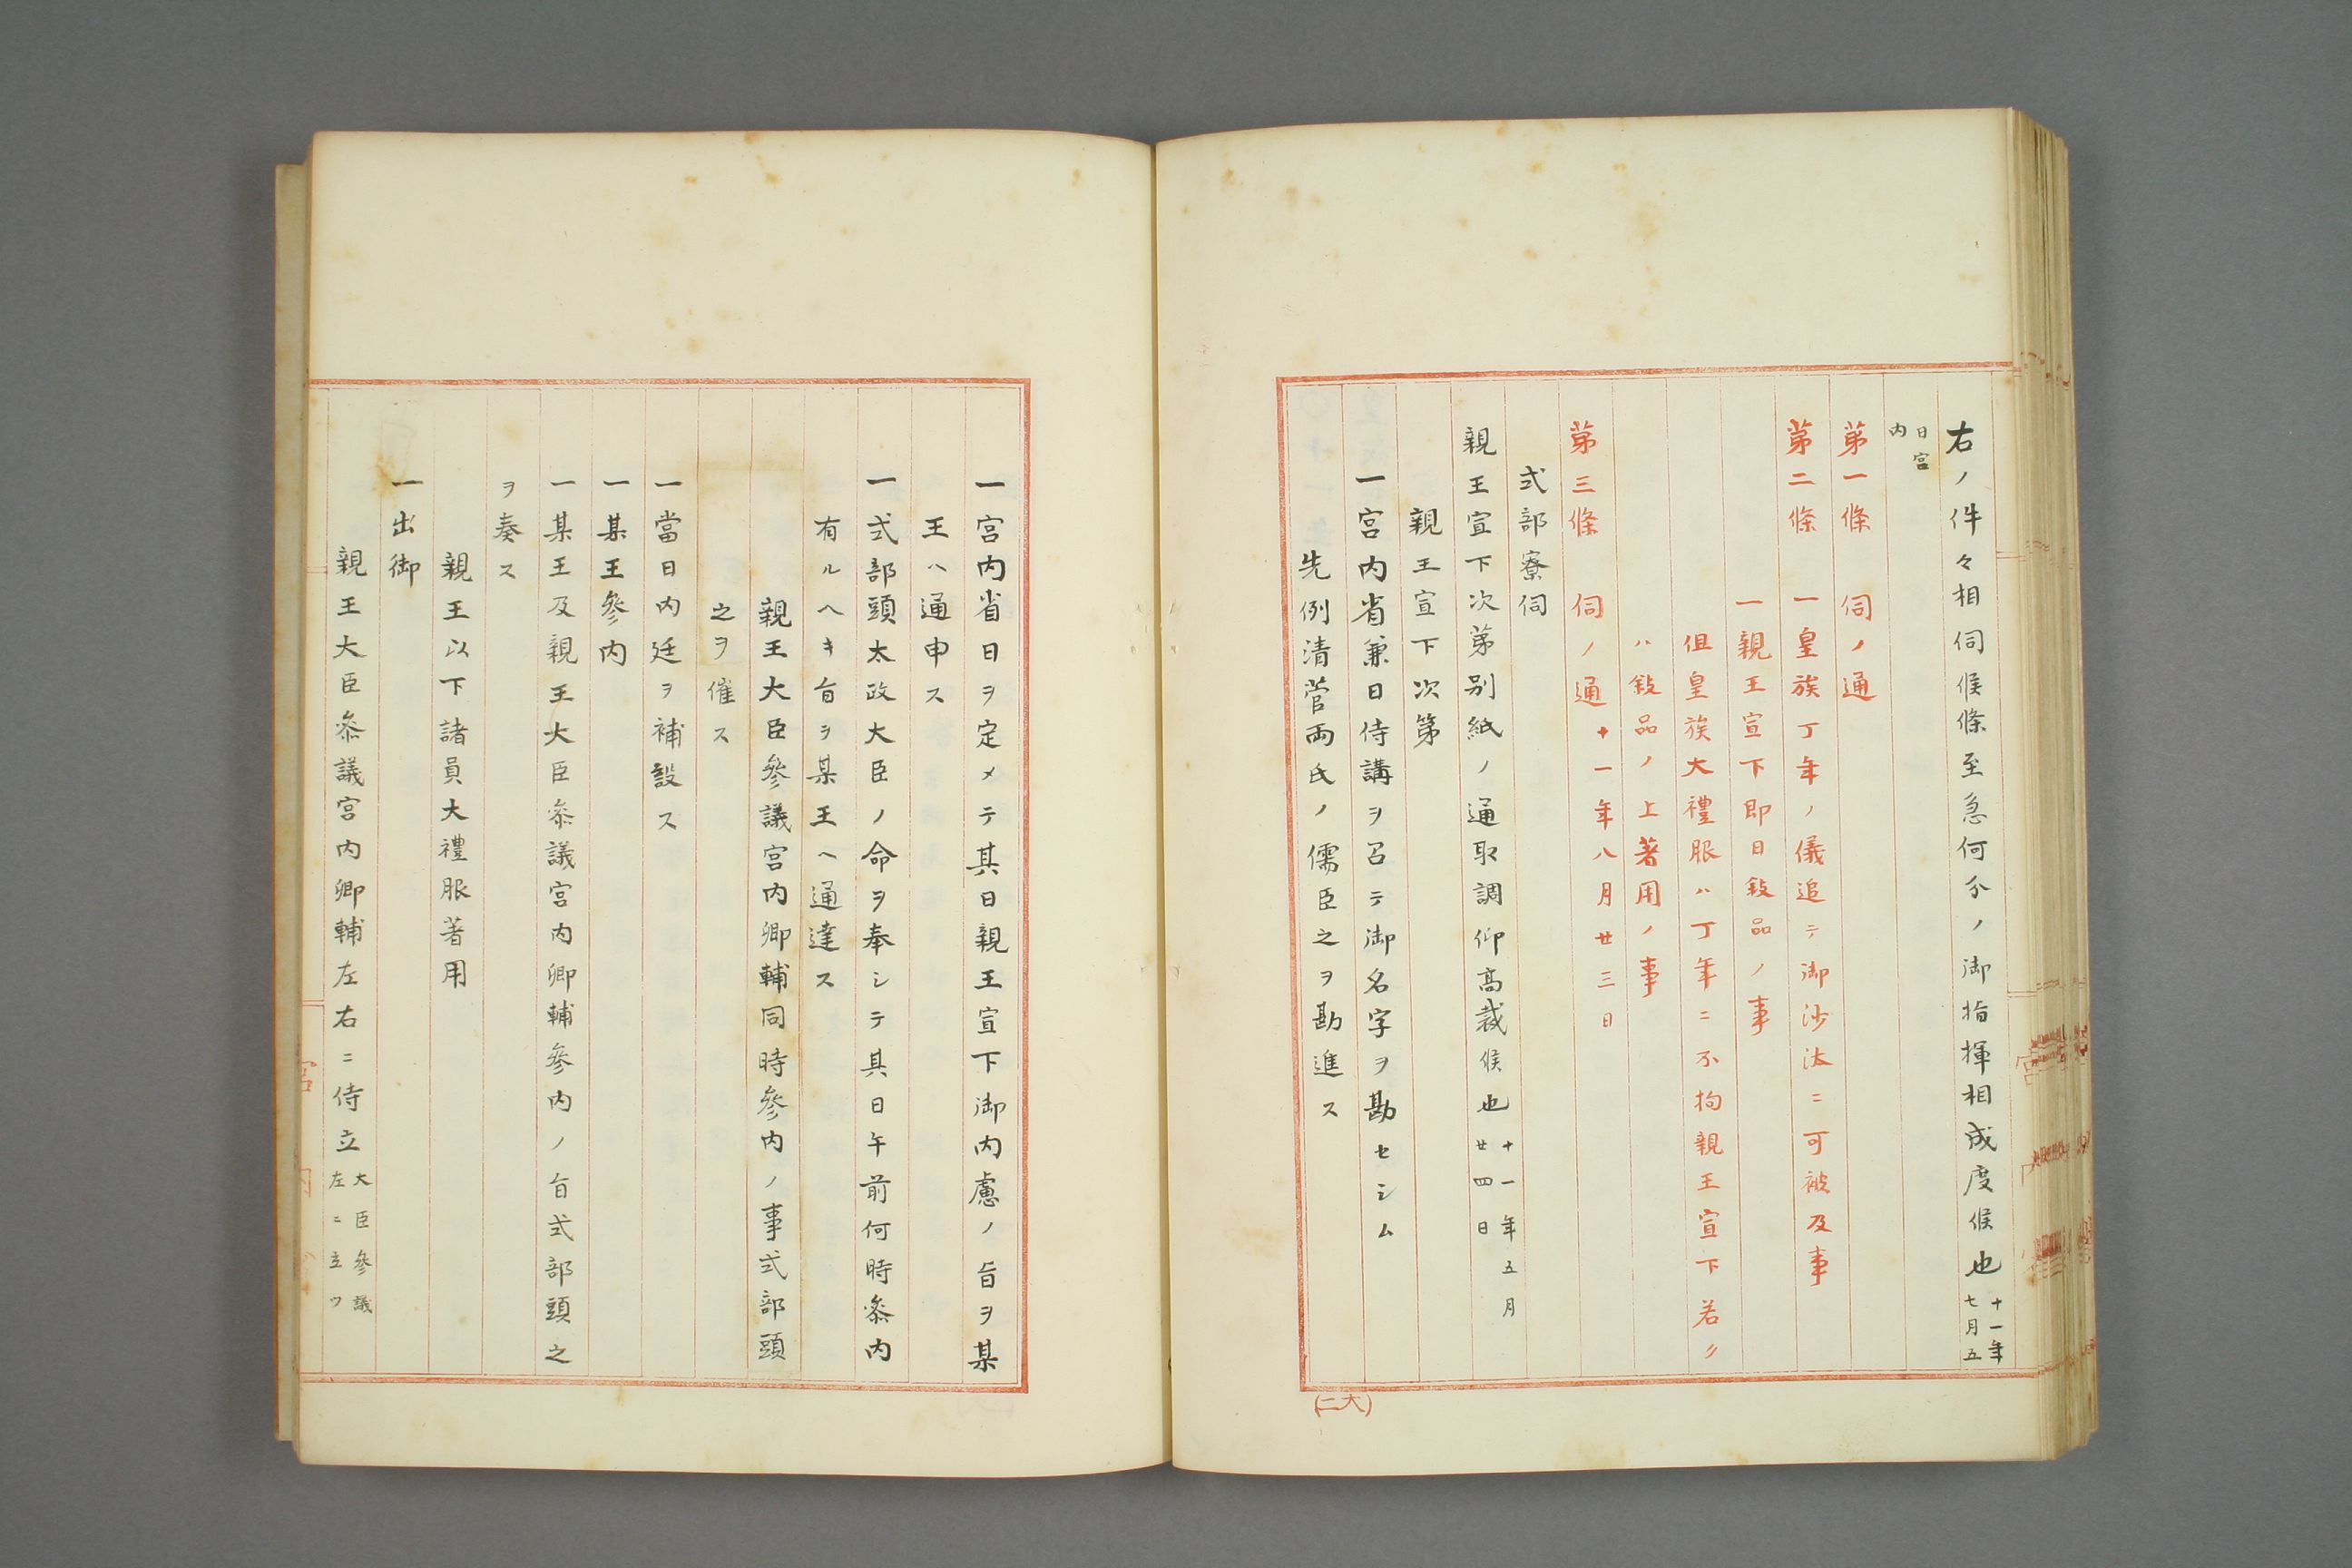 右ノ件々相伺候條至急何分ノ御指揮相成度候也十一年七月五
日宮内
第一條 伺ノ通
第二條 一皇族丁年ノ儀追テ御沙汰ニ可被及事
一親王宣下即日敍品ノ事
但皇族大禮服ハ丁年ニ不拘親王宣下若クハ敍品ノ上著用ノ事
第三條 伺ノ通十一年八月廿三日
式部寮伺
親王宣下次第別紙ノ通取調仰高裁候也十一年五月廿四日
親王宣下次第
一宮内省兼日侍講ヲ召テ御名字ヲ勘セシム
先例清菅両氏ノ儒臣之ヲ勘進ス
(二大)
一宮内省日ヲ定メテ其日親王宣下御内慮ノ旨ヲ某
王ハ通申ス
一式部頭太政大臣ノ命ヲ奉シテ其日午前何時參内
有ルヘキ旨ヲ某王ヘ通達ス
親王大臣參議宮内卿輔同時參内ノ事式部頭
之ヲ催ス
一當日内廷ヲ補設ス
一某王參内
一某王及親王大臣參議宮内卿輔參内ノ旨式部頭之
ヲ奏ス
親王以下諸員大禮服著用
一出御
親王大臣參議宮内卿輔左右ニ侍立大臣參議左ニ立ツ